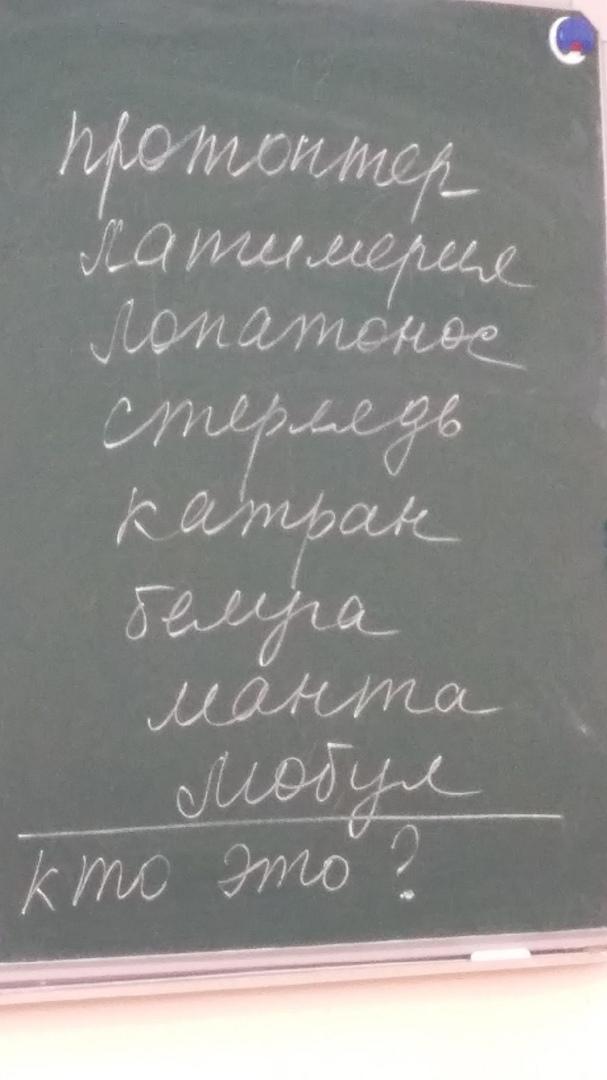 протоптер
латимерия
лопатонос
стерлядь
катран
белуга
манта
мобул
кто это?